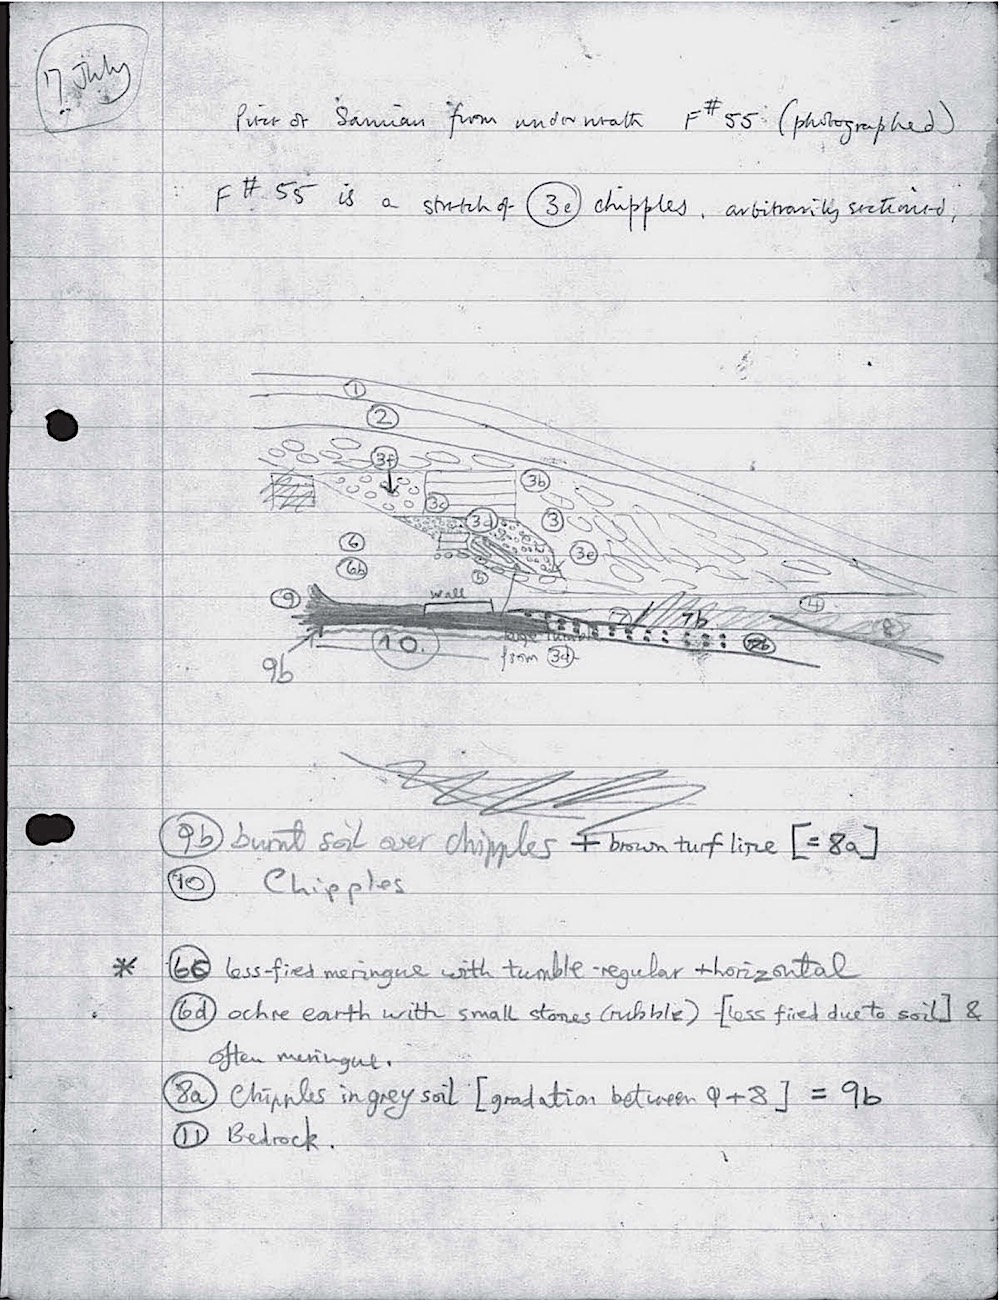 17 July
Piece of Samian from underneath F# 55 (photographed)
F# 55 is a stretch of 3e chipples, arbitrarily sectioned,
1
2
3f
3b
3c
3d
3
3e
6
6b
5
9
wall
4
7
7b
8
10.
huge tumble
from 3d
9b
9b burnt soil over chipples + brown turf line [= 8a]
10 Chipples
* 6c less-fired meringue with tumble - regular + horizontal
6d ochre earth with small stones (rubble) - [less fired due to soil] &
often meringue.
8a Chipples in grey soil [gradation between 9+8] = 9b
11 Bedrock.